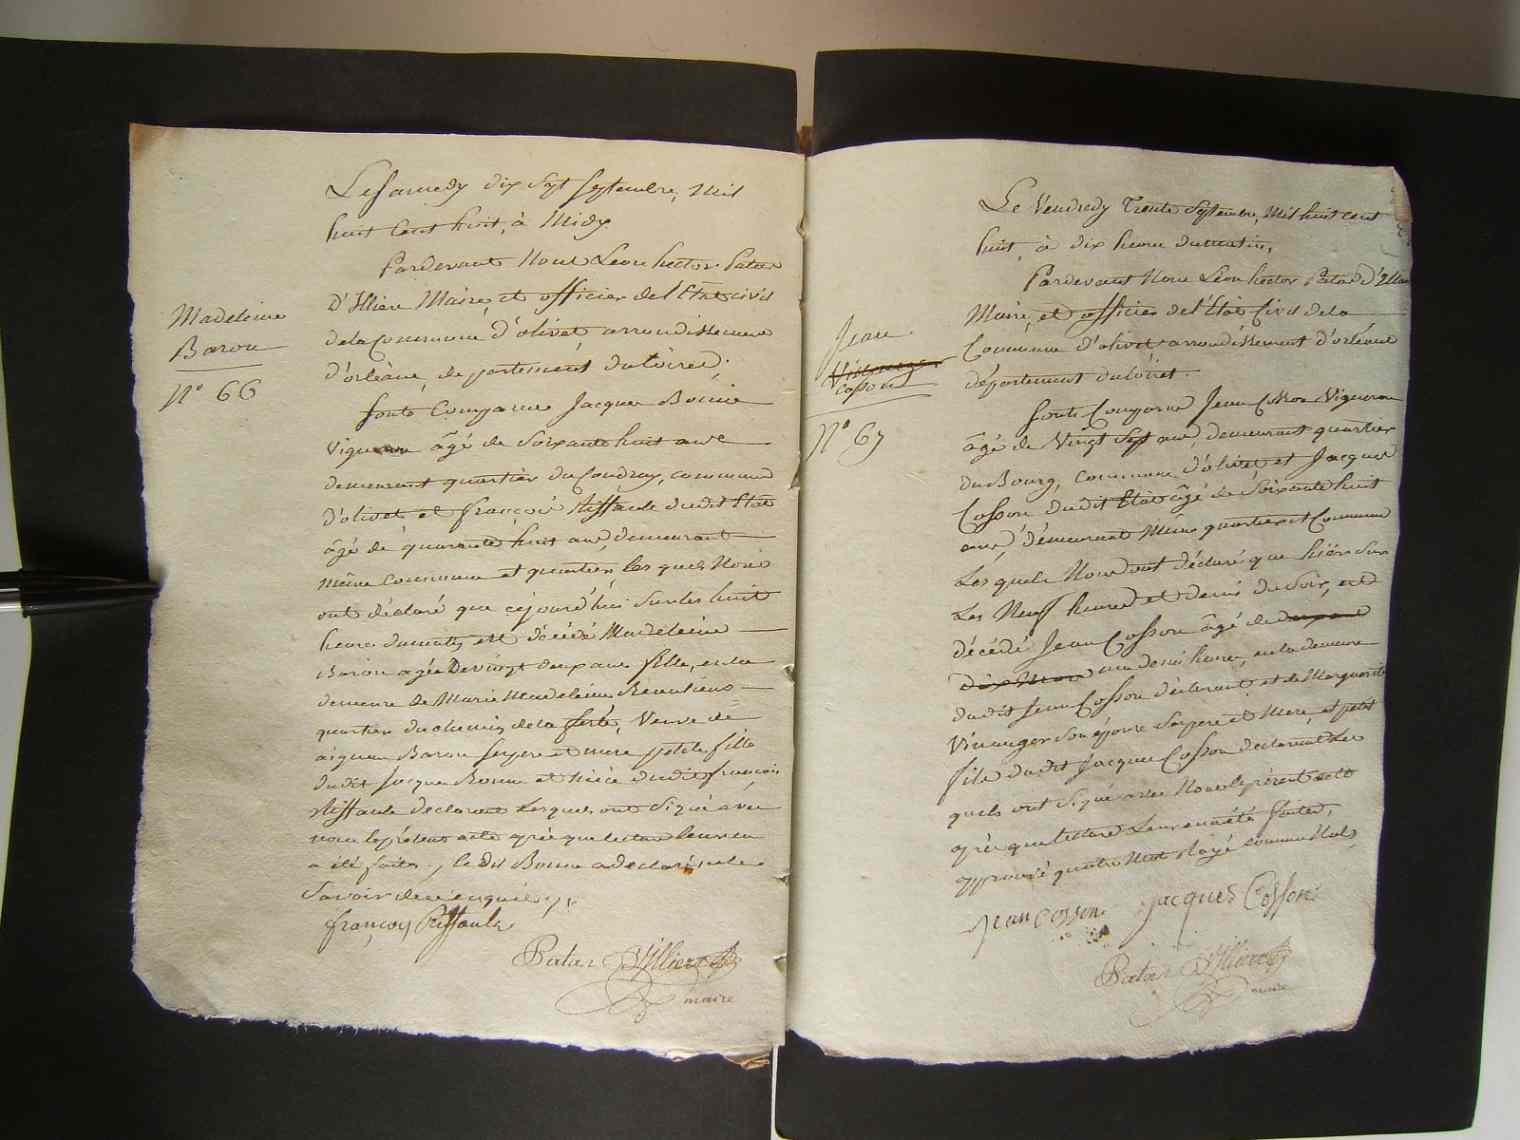 Le Samedy dix Sept Septembre, Mil
huit Cent huit, à Midy
Pardevant Nous Léon hector Patas
D'Illiers Maire, et officier de l'Etat civil
de la Commune d'olivet arrondissement
d'orléans, département du Loiret.
Madeleine
Baron
N° 66
Sont Comparus Jacques
Vigneron âgé de Soixante huit ans
demeurant quartier du Coudray, commune
d'olivet et françois Riffault dudit Etat
âgé de quarante huit ans, demeurant
même Commune et quartier les quels Nous
ont déclaré que cejourd'hui sur les huit
heures du matin est décédé Madeleine
Baron agée De vingt deux ans fille, en la
demeure de Marie Madeleine
quartier du chemin de la ferté, Veuve de
aignan Baron Ses pere et mere petite fille
dudit Jacques et Niéce dudit françois
Riffault declarant Lesquels ont Signé avec
nous le présent acte après que lecture leur en
a été faite, le dit a declaré ne le
Savoir de ce enquis
françois Riffault
Patas D'Illiers
maire
Le Vendredy Trente Septembre, Mil huit cent
huit, à dix heures du matin,
Pardevant Nous Léon hector Patas D'Illiers
Maire, et officier de l'Etat Civil de la
Commune d'olivet arrondissement d'orléans
département du Loiret.
Jean
Cosson
N° 67
Sont Comparus Jean Cosson Vigneron
âgé de Vingt Sept ans, demeurant quartier
du Bourg, Commune d'olivet et Jacques
Cosson dudit Etat âgé de Soixante huit
ans, demeurant Même quartier et Commune
Les quels Nous ont déclaré que hier Sur
Les Neuf heures et demie du Soir, est
décédé Jean Cosson âgé de
une demi heure, en la demeure
dudit Jean Cosson déclarant et de Marguerite
Vinauger Son épouse Ses pere et Mere, et petit
fils dudit Jacques Cosson declarant Les
quels ont Signé avec Nous le présent acte
après que lecture Leur en a été faite,
approuvé quatre Mots Rayé comme Nuls
Jean Cosson Jacques Cosson
Patas D'Illiers
maire